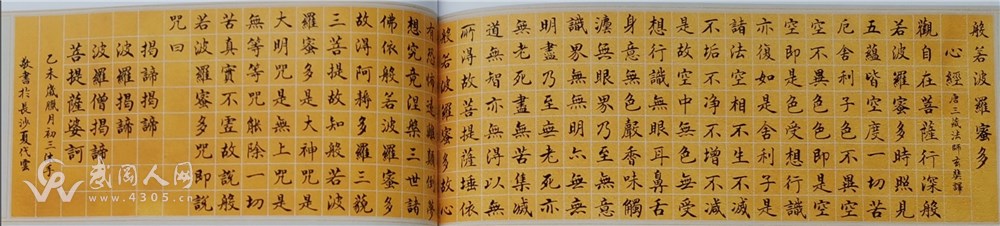 般若波羅蜜多
心經 唐三藏法師玄奘譯
觀自在菩薩行深般
若波羅蜜多時照見
五蘊皆空度一切苦
厄舍利子色不異空
空不異色色即是空
空即是色受想行識
亦復如是舍利子是
諸法空相不生不滅
不垢不淨不增不減
是故空中無色無受
想行識無眼耳鼻舌
身意無色聲香味觸
法無眼界乃至無意
識界無無明亦無無
明盡乃至無老死亦
無老死盡無苦集滅
道無智亦無得以無
所得故菩提薩埵依
般若波羅蜜多故心
有恐怖遠離顛倒夢
想究竟涅槃三世諸
佛依般若波羅蜜多
故得阿耨多羅三藐
三菩提故知般若波
羅蜜多是大神咒是
大明咒是無上咒是
無等等咒能除一切
苦真實不虛故說般
若波羅蜜多咒即說
咒曰
揭諦揭諦
波羅揭諦
波羅僧揭諦
菩提薩婆訶
乙未歲臘月初三
敬書於長沙夏
武冈人网
www.4305.cn